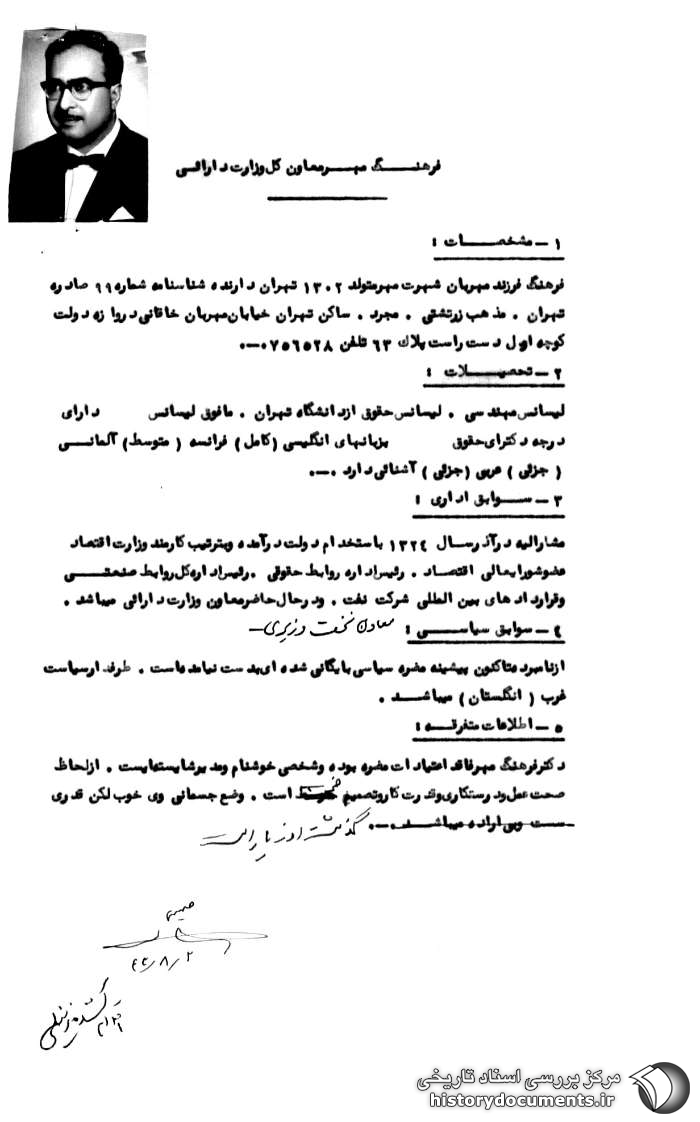 فرهنگ مهر معاون کل وزارت دارائی
۱ – مشخصات :
فرهنگ فرزند مهربان شهرت مهر متولد ۱۳۰۲ تهران دارنده شناسنامه شماره ۹۹ صادره
تهران . مذهب زرتشتی . مجرد . ساکن تهران خیابان مهربان خاقانی دروازه دولت
کوچه اول دست راست پلاک ۶۳ تلفن ۷۵۶۵۲۸.–.
۲ – تحصیلات :
لیسانس مهندسی . لیسانس حقوق از دانشگاه تهران . مافوق لیسانس دارای
درجه دکترای حقوق بزبانهای انگلیسی (کامل) فرانسه (متوسط) آلمانی
(جزئی) عربی (جزئی) آشنائی دارد .–.
۳ – سوابق اداری :
مشارالیه در آذر سال ۱۳۲۴ باستخدام دولت درآمده و بترتیب کارمند وزارت اقتصاد
عضو شورایعالی اقتصاد . رئیس اداره روابط حقوقی . رئیس اداره کل روابط صنعتی
و قراردادهای بین المللی شرکت نفت . و در حال حاضر معاون وزارت دارائی میباشد .
۴ – سوابق سیاسی : معاون نخست وزیری –
از نامبرده تاکنون پیشینه مضره سیاسی بایگانی شده ای بدست نیامده است . طرفدار سیاست
غرب (انگلستان) میباشد .
۵ – اطلاعات متفرقه :
دکتر فرهنگ مهر فاقد اعتیادات مضره بوده و شخصی خوشنام و مدیر شایسته ایست . از لحاظ
صحت عمل و درستکاری و قدرت کار و تصمیم است . وضع جسمانی وی خوب لکن قدری
سست و بی اراده میباشد .–.
۴۴/۸/۲
مرکز بررسی اسناد تاریخی
historydocuments.ir